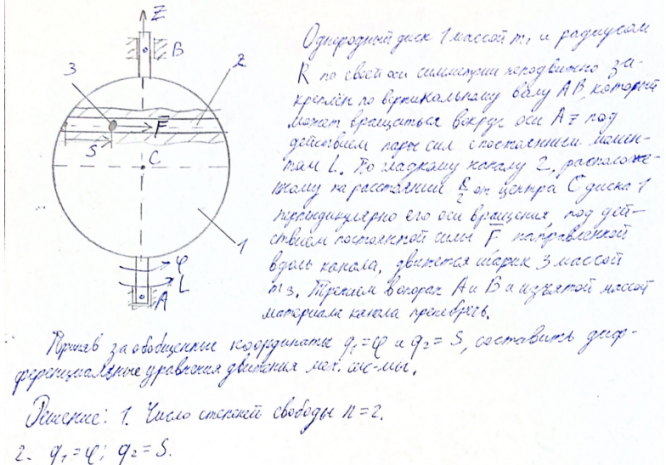 Z
B
Однородный диск 1 массой m₁ и радиусом
3
2
R по своей оси симметрии неподвижно за-
F̄
креплён по вертикальному валу AB, который
может вращаться вокруг оси Az под
S
действием пары сил с постоянным момен-
C
том L. По гладкому каналу 2, расположе-
нному на расстоянии R/2 от центра C диска 1
перпендикулярно его оси вращения, под дей-
1
ствием постоянной силы F̄ направленной
φ
вдоль канала, движется шарик 3 массой
L
A
m₃. Трением в опорах A и B и изъятой массой
материала канала пренебречь.
Приняв за обобщенные координаты q₁=φ и q₂=S, составить диф-
ференциальные уравнения движения мех. сис-мы.
Решение: 1. Число степеней свободы n=2.
2. q₁=φ; q₂=S.